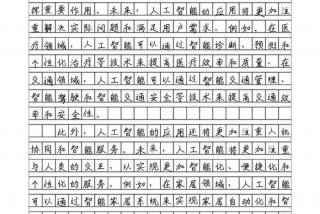 挥重要作用。未来，人工智能的应用将更加注
重解决实际问题和满足用户需求。例如，在医
疗领域，人工智能可以通过智能诊断、预测和
个性化治疗等技术来提高医疗效率和质量。在
交通领域，人工智能可以通过智能交通管理、
智能驾驶和智能交通安全等技术来提高交通效
率和安全性。
此外，人工智能的应用还将更加注重人机
协同和智能服务。人工智能技术将更加注重
与人类的交互，以实现更加智能化、便捷化和
个性化的服务。例如，在家居领域，人工智能
可以通过智能家居系统来实现家居自动化和智